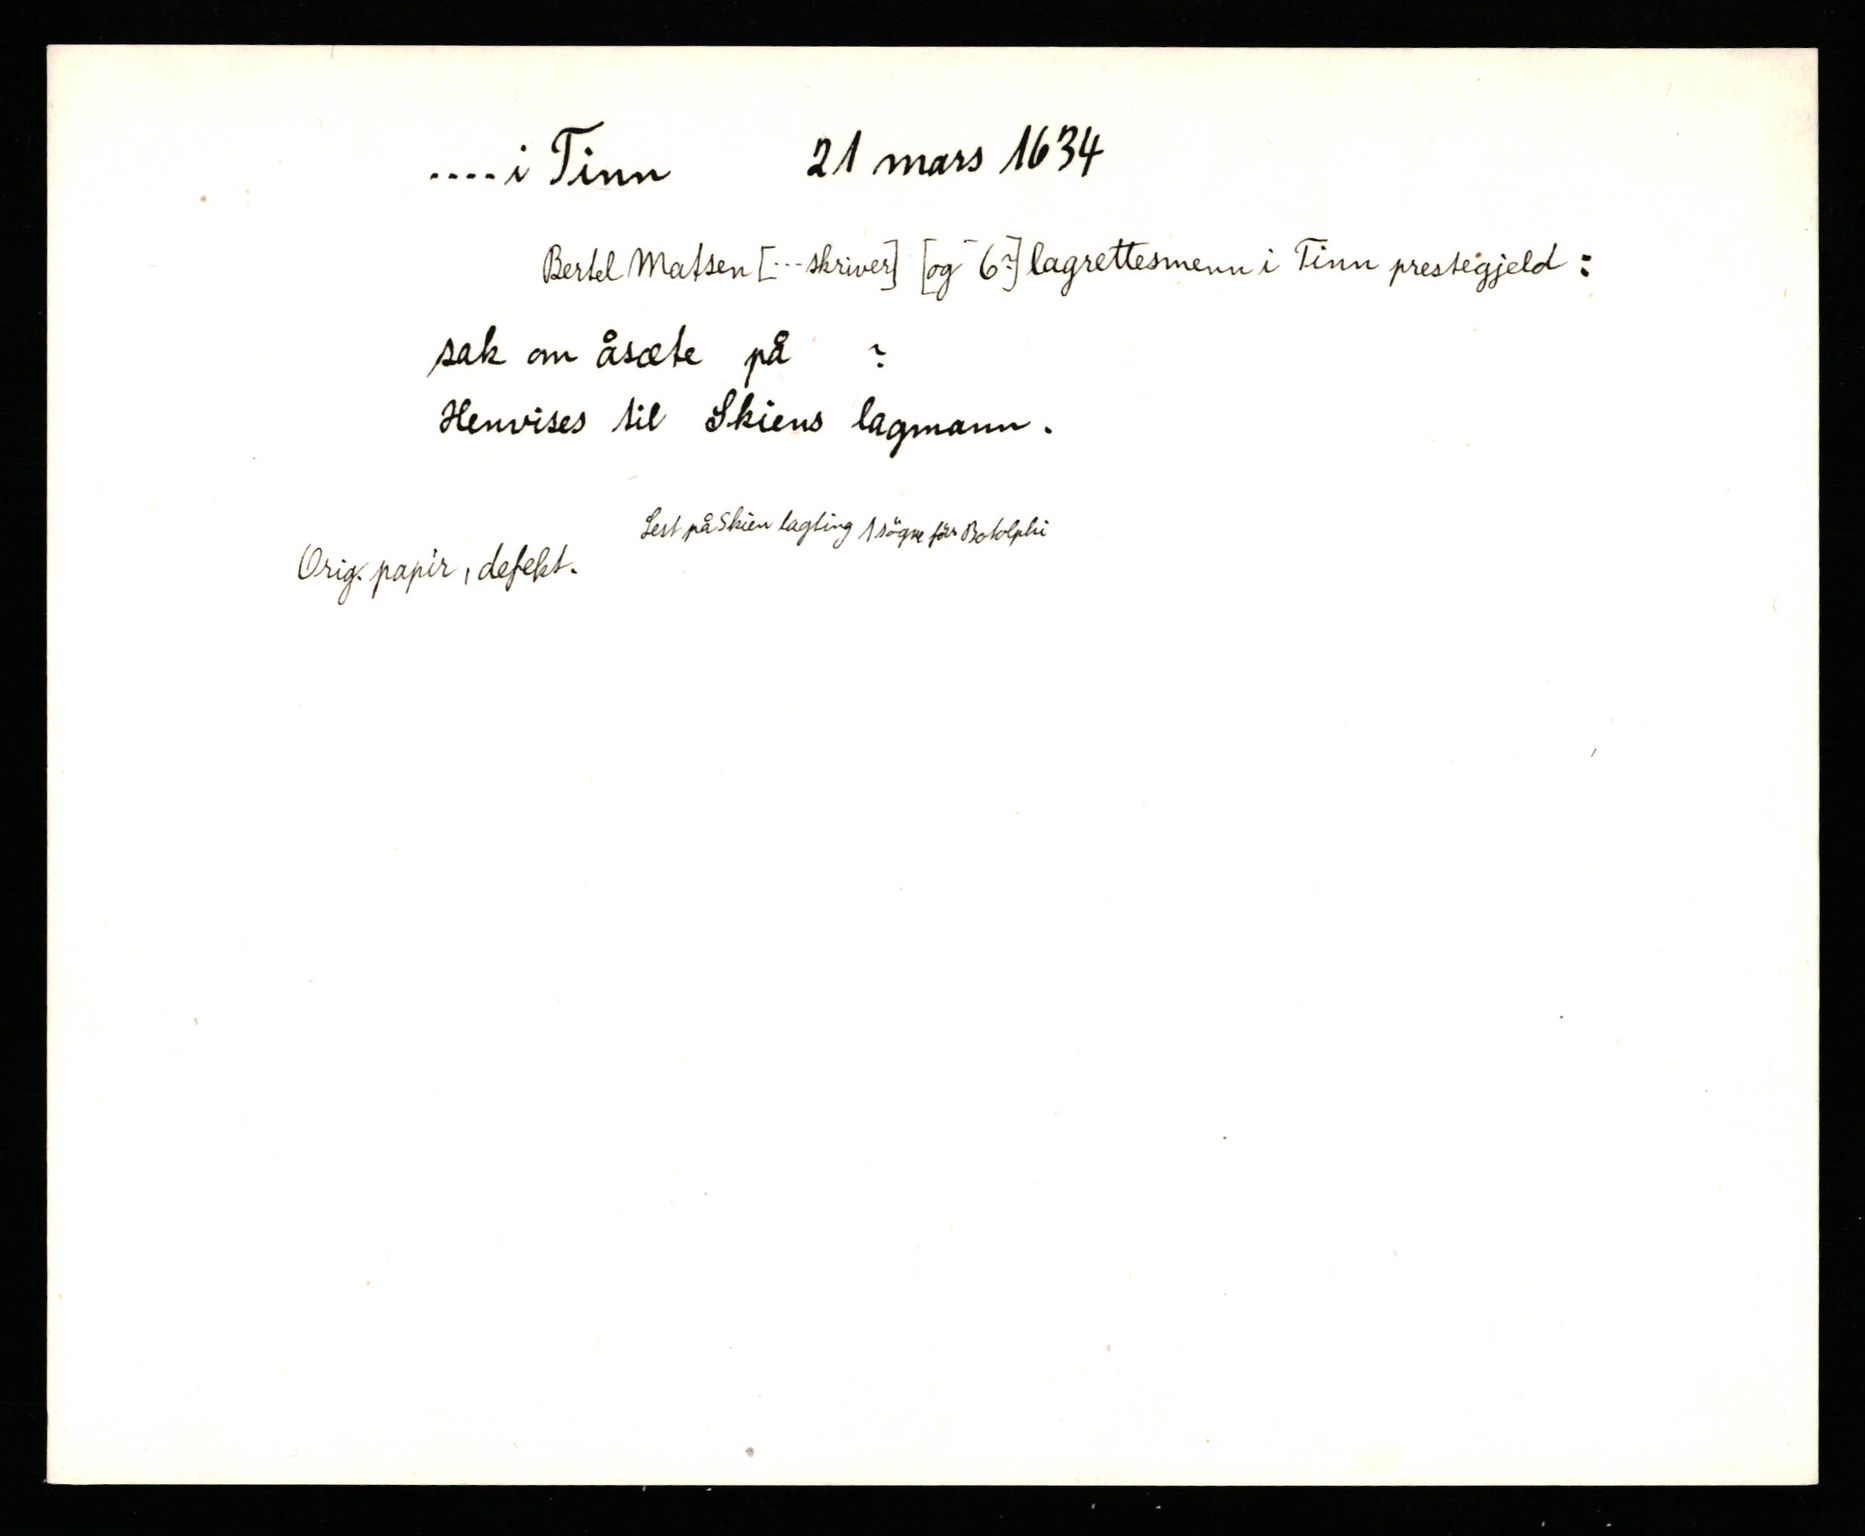 ....i Tinn 21 mars 1634
Bertel Matsen [...skriver] [og 6?] lagrettesmenn i Tinn prestegjeld:
sak om åsæte på ?
Henvises til Skiens lagmann.
Lest på Skien lagting 1 søgne før Botolphi
Orig. papir, defekt.